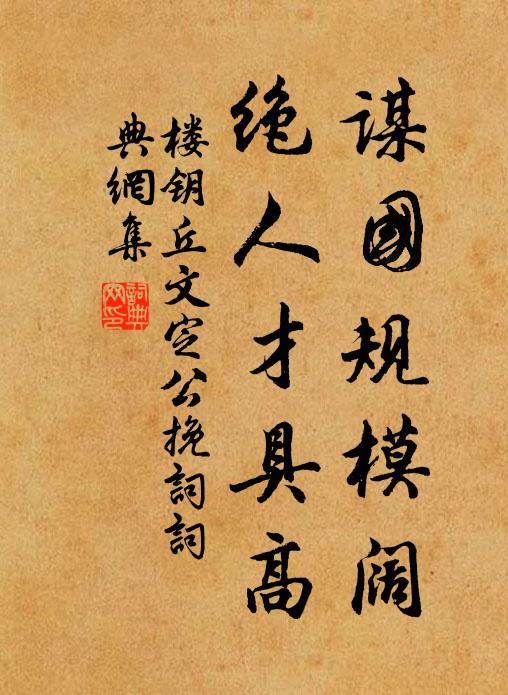 谋国规模阔
绝人才具高
楼钥丘文定公挽词词
典网集
词典
网印